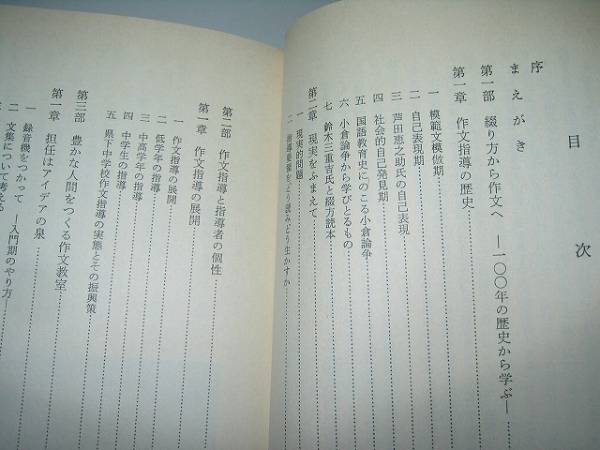 目次
序
まえがき
第一部 綴り方から作文へ ―一〇〇年の歴史から学ぶ―
第一章 作文指導の歴史
一 模範文模倣期
二 自己表現期
三 芦田恵之助氏の自己表現
四 社会的自己発見期
五 国語教育史にのこる小倉論争
六 小倉論争から学びとるもの
七 鈴木三重吉氏と綴方読本
第二章 現実をふまえて
一 現実的問題
二 指導要領をどう読みどう生かすか
第二部 作文指導と指導者の個性
第一章 作文指導の展開
一 作文指導の展開
二 低学年の指導
三 中高学年の指導
四 中学生の指導
五 県下中学校作文指導の実態とその振興策
第三部 豊かな人間をつくる作文教室
第一章 担任はアイデアの泉
一 録音機をつかって ―入門期のやり方―
二 文集について考える